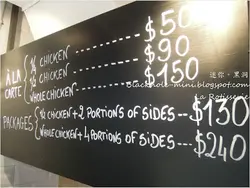 À LA CARTE
1/4 CHICKEN ---------- $50
1/2 CHICKEN ---------- $90
WHOLE CHICKEN ------- $150
PACKAGES
CHICKEN + 2 PORTIONS OF SIDES -- $130
WHOLE CHICKEN + 4 PORTIONS OF SIDES -- $240
迷你。黑洞
Blackhole-mini.blogspot.com
La Rotisserie